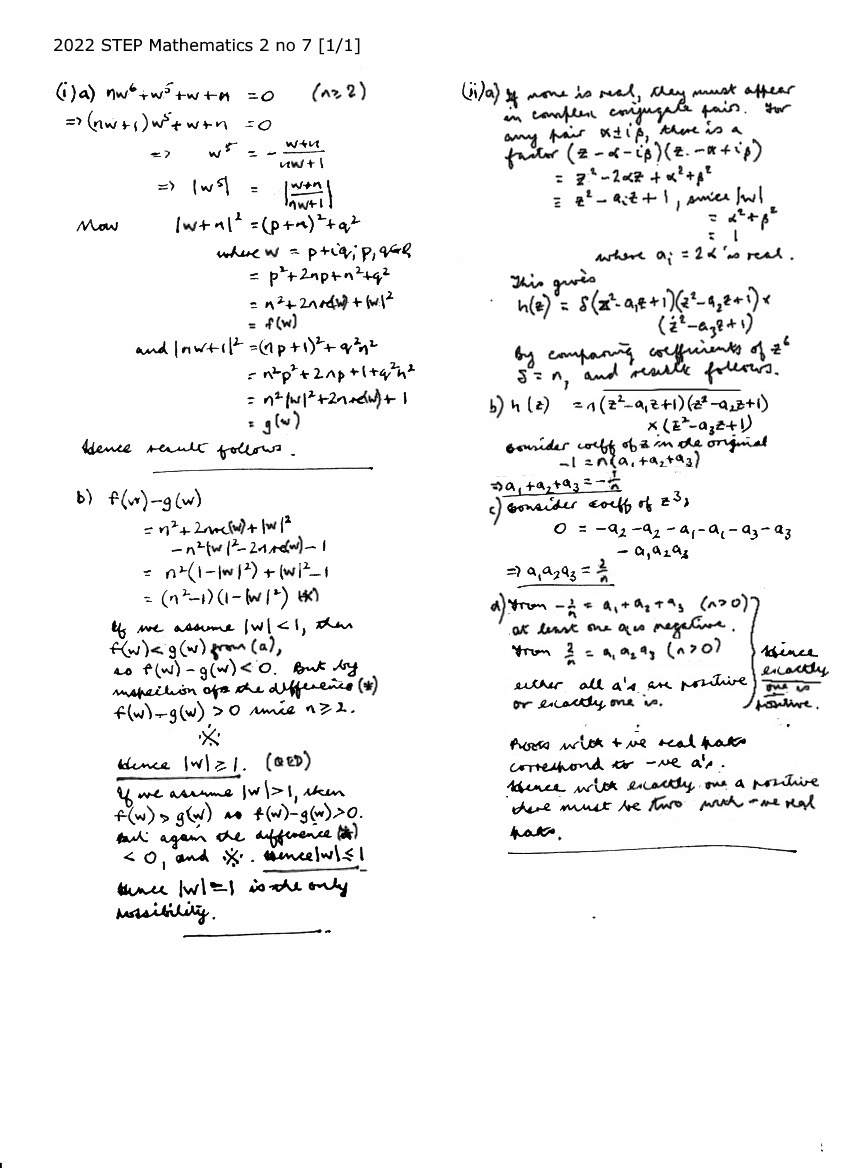 2022 STEP Mathematics 2 no 7 [1/1]
(i) a) nw⁶+w⁵+w+n = 0 (n≥2)
=> (nw+1)w⁵+w+n = 0
=> w⁵ = - (w+n)/(nw+1)
=> |w⁵| = |(w+n)/(nw+1)|
Now |w+n|² = (p+n)²+q²
where w = p+iq; p,q∈ℝ
= p²+2np+n²+q²
= n²+2nre(w)+|w|²
= f(w)
and |nw+1|² = (np+1)²+q²n²
= n²p²+2np+1+q²n²
= n²|w|²+2nre(w)+1
= g(w)
Hence result follows.
b) f(w)-g(w)
= n²+2nre(w)+|w|²
-n²|w|²-2nre(w)-1
= n²(1-|w|²)+|w|²-1
= (n²-1)(1-|w|²) (*)
If we assume |w|<1, then
f(w)<g(w) from (a),
so f(w)-g(w)<0. But by
inspection of the difference (*)
f(w)-g(w)>0 since n≥2.
※
Hence |w|≥1. (QED)
If we assume |w|>1, then
f(w)>g(w) so f(w)-g(w)>0.
But again the difference (*)
<0, and ※. Hence |w|≤1
Hence |w|=1 is the only
possibility.
(ii) a) If none is real, they must appear
in complex conjugate pairs. For
any pair α±iβ, there is a
factor (z-α-iβ)(z-α+iβ)
= z²-2αz+α²+β²
= z²-aᵢz+1, since |w|
= α²+β²
= 1
where aᵢ = 2α is real.
This gives
h(z) = δ(z²-a₁z+1)(z²-a₂z+1)×
(z²-a₃z+1)
By comparing coefficients of z⁶
δ=n, and result follows.
b) h(z) = n(z²-a₁z+1)(z²-a₂z+1)
×(z²-a₃z+1)
Consider coeff of z in the original
-1 = n(a₁+a₂+a₃)
=> a₁+a₂+a₃ = -1/n
c) Consider coeff of z³;
0 = -a₂-a₂-a₁-a₁-a₃-a₃
-a₁a₂a₃
=> a₁a₂a₃ = 2/n
d) From -1/n = a₁+a₂+a₃ (n>0)
at least one a is negative.
From 2/n = a₁a₂a₃ (n>0)
either all a's are positive
or exactly one is.
Hence
exactly
one is
positive.
Roots with +ve real parts
correspond to -ve a's.
Hence with exactly one a positive
there must be two with -ve real
parts.